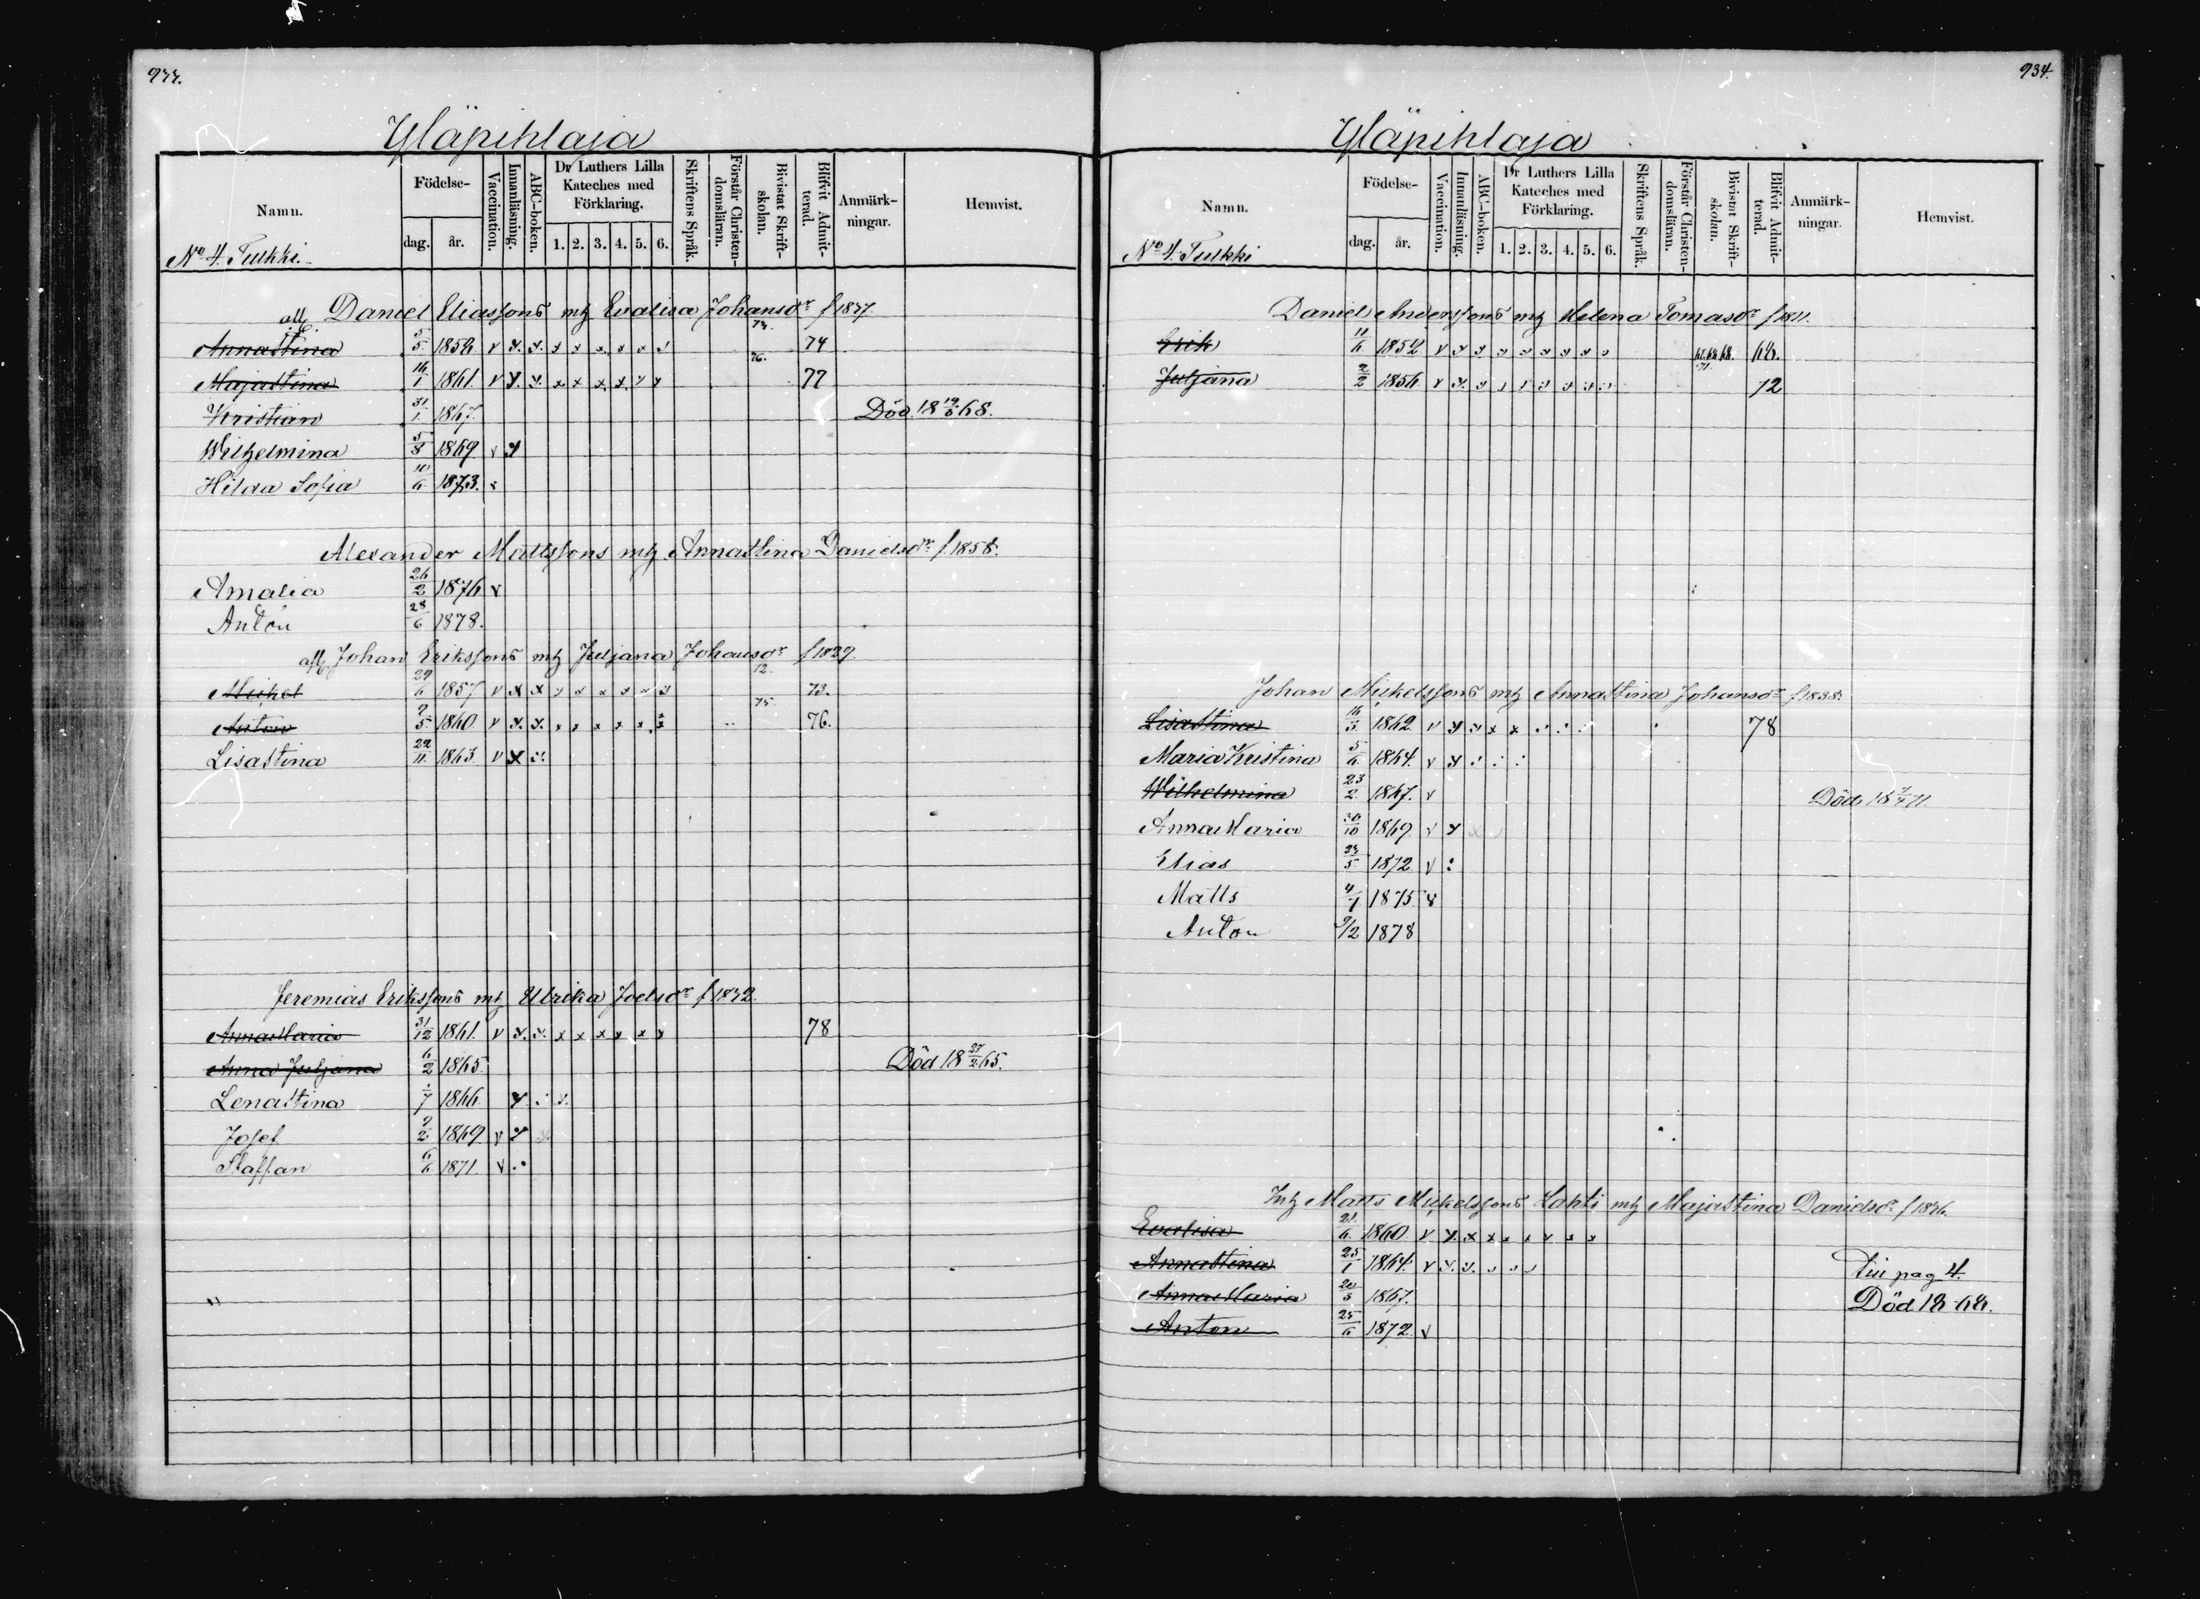 933.
Yläpihlaja
Namn.
Födelse-
dag.
år.
Vaccination.
Innanläsning.
ABC-boken.
Dr Luthers Lilla
Kateches med
Förklaring.
1. 2. 3. 4. 5. 6.
Skriftens Språk.
Förstår Christen-
domsläran.
Bivistat Skrift-
skolan.
Blifvit Admit-
terad.
Anmärk-
ningar.
Hemvist.
No 4. Tulkki.
afl. Daniel Eliassons mh Evalisa Johansdr f 1837.
Annastina 5/5 1858 v 74
Majastina 16/1 1861. v 76. 77
Kristian 31/1 1867. Död 18 19/6 68.
Wilhelmina 5/8 1869 v
Hilda Sofia 10/6 1873. v
Alexander Mattssons mh Annastina Danielsdr f 1858.
Amalia 26/2 1876 v
Anton 28/6 1878.
afl. Johan Erikssons mh Juljana Johansdr f 1829
Mickel 29/6 1857 v x x 72. 73.
Anton 9/5 1860 v 75 76.
Lisastina 22/11 1863 v x
Jeremias Erikssons mh Ulrika Joelsdr f 1832.
Anna Maria 31/12 1861. v 78
Anna Juljana 6/2 1865 Död 18 27/2 65.
Lenastina 1/7 1866
Josef 9/2 1869 v
Staffan 6/6 1871. v
934.
Yläpihlaja
Namn.
Födelse-
dag.
år.
Vaccination.
Innanläsning.
ABC-boken.
Dr Luthers Lilla
Kateches med
Förklaring.
1. 2. 3. 4. 5. 6.
Skriftens Språk.
Förstår Christen-
domsläran.
Bivistat Skrift-
skolan.
Blifvit Admit-
terad.
Anmärk-
ningar.
Hemvist.
No 4. Tulkki
Daniel Anderssons mh Helena Tomasdr f 1811.
Erik 11/6 1852 v 68.
Juljana 2/2 1856 v 71 72
Johan Mickelssons mh Annastina Johansdr f 1838.
Lisastina 16/3 1862 v 78
Maria Kristina 5/6 1864. v
Wilhelmina 23/2 1867. v Död 18 71
Anna Maria 30/10 1869 v
Elias 23/5 1872 v
Matts 4/1 1875 v
Anton 9/2 1878
Inh Matts Mickelssons Lahti mh Majastina Danielsdr f 1836.
Evalisa 21/6 1860 v
Annastina 25/1 1864. v Til pag 4.
Anna Maria 20/3 1867. Död 18 68.
Anton 25/6 1872 v